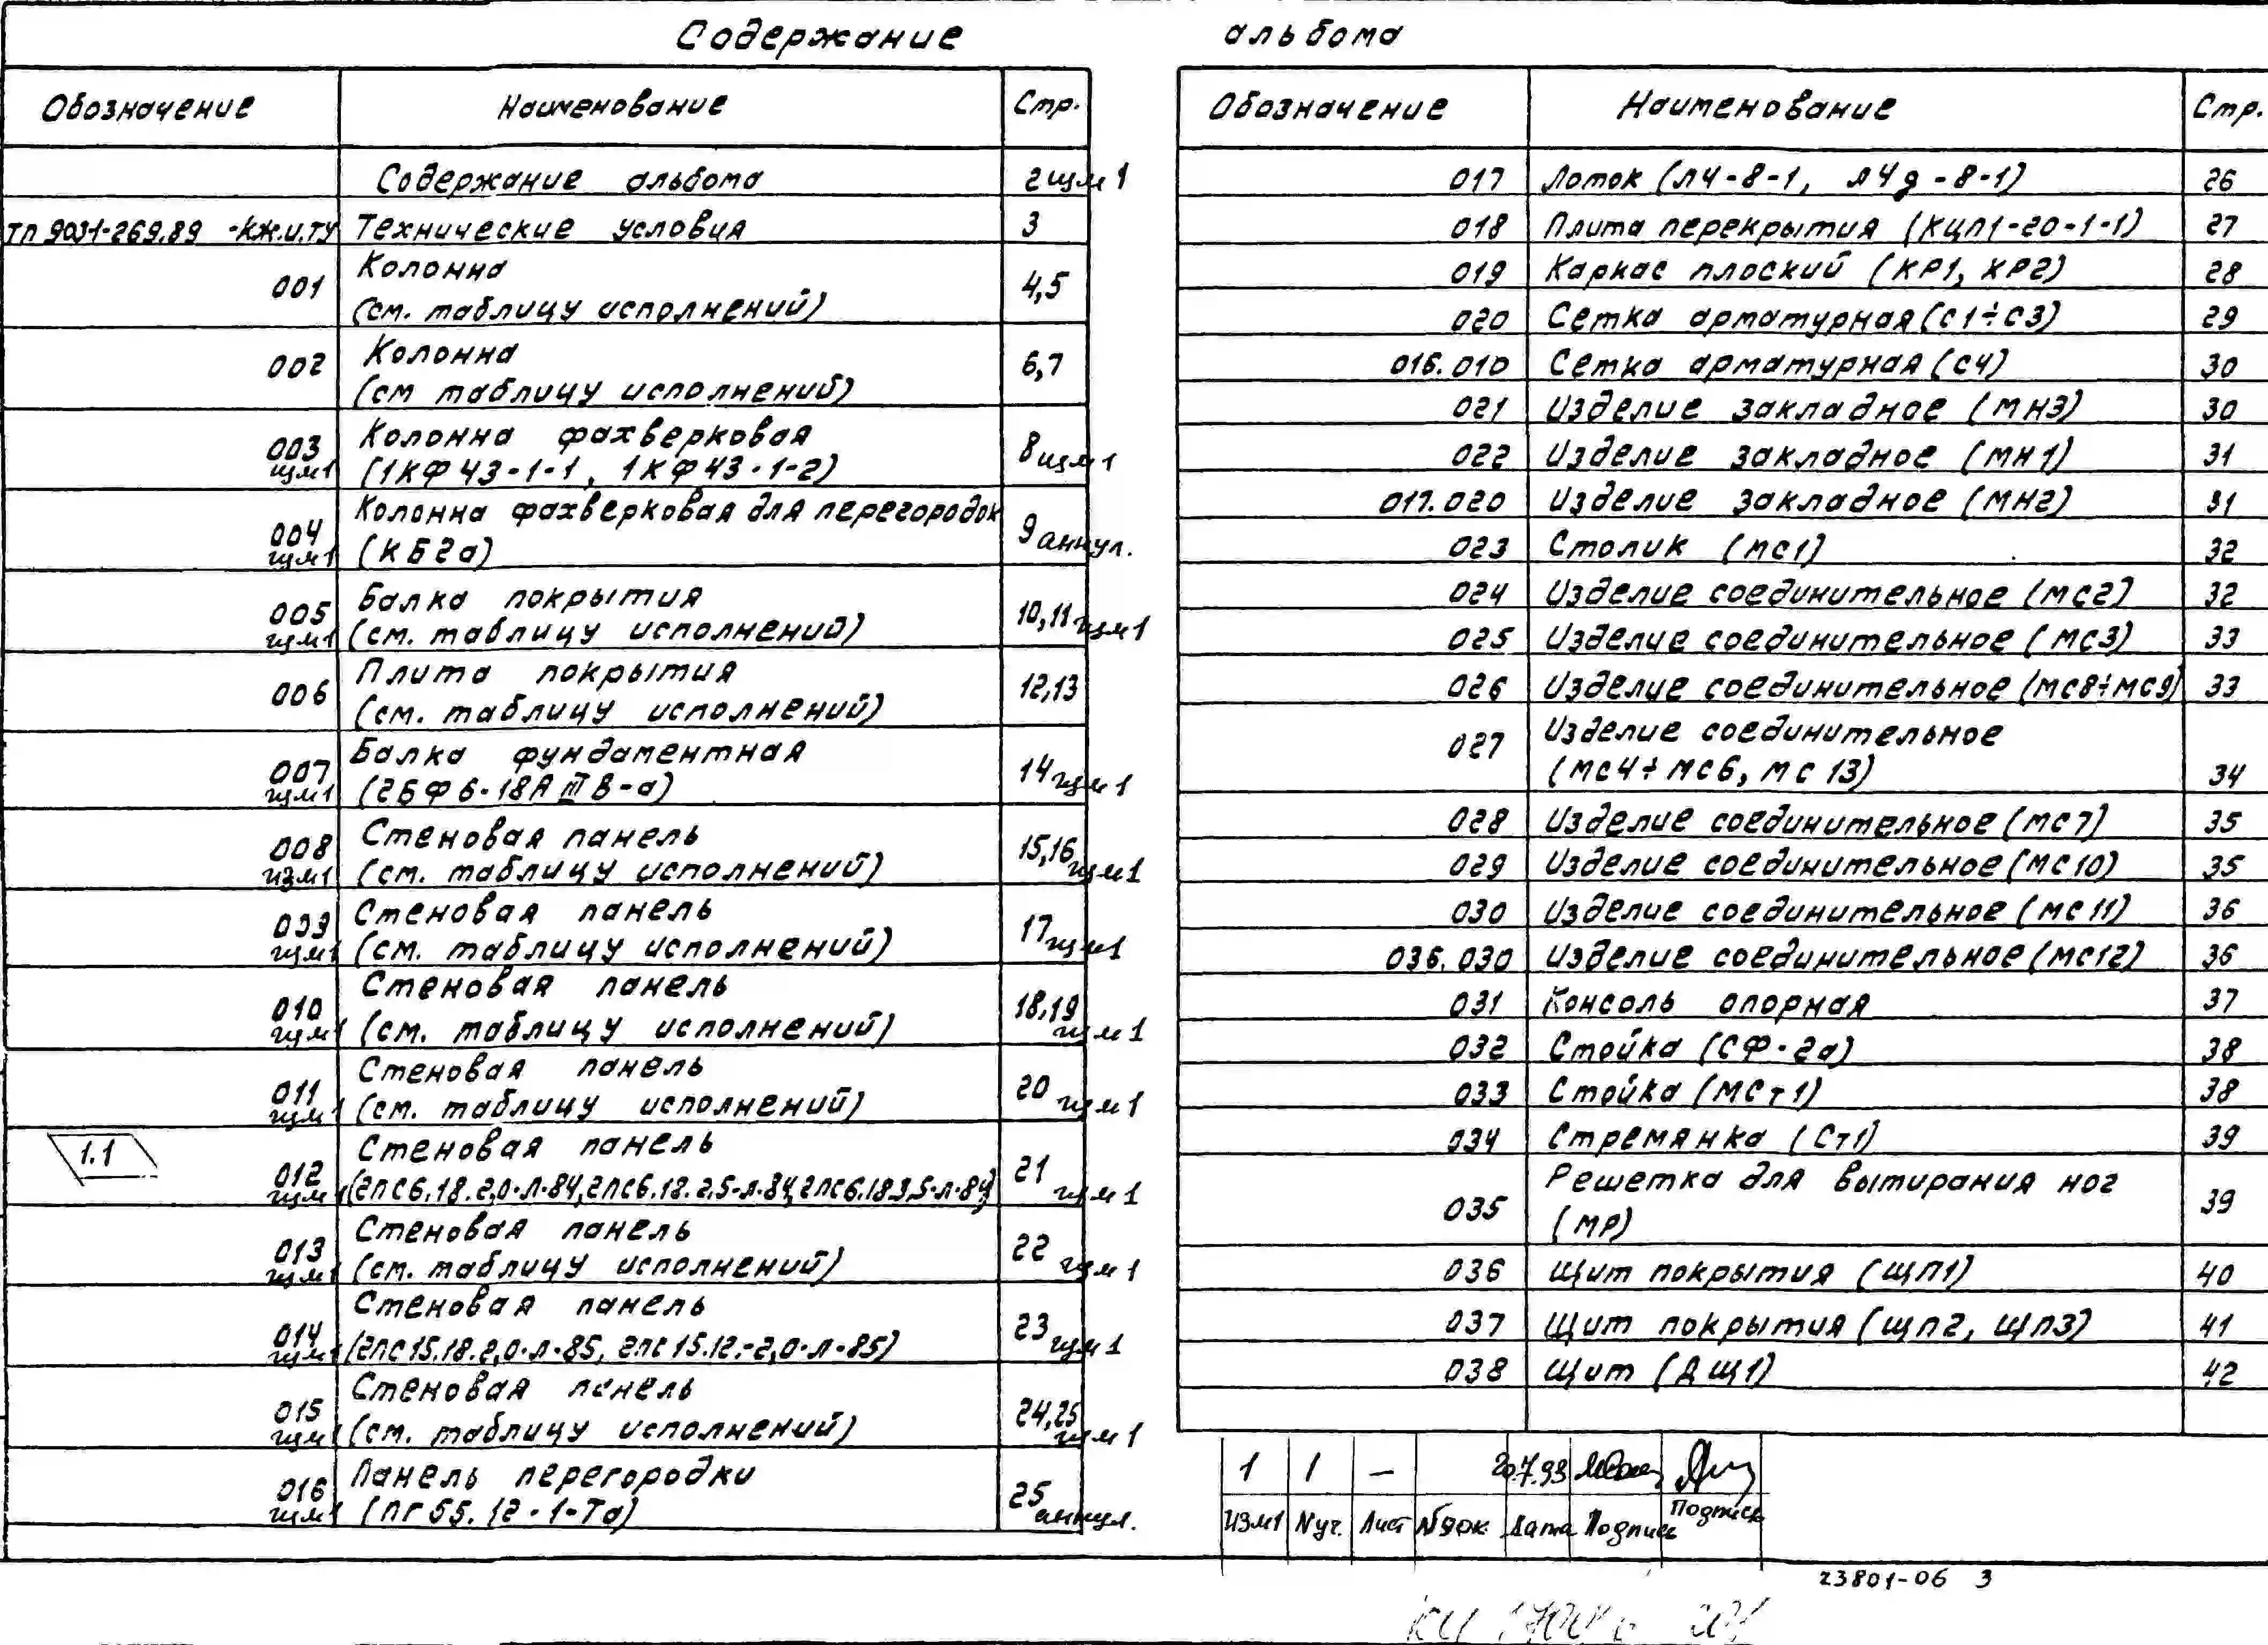 Содержание альбома
Обозначение Наименование Стр.
Содержание альбома 2 изм1
ТП 9031-269.89 -КЖ.И.ТУ Технические условия 3
001 Колонна
(см. таблицу исполнений) 4,5
002 Колонна
(см таблицу исполнений) 6,7
003 изм1 Колонна фахверковая
(1КФ43-1-1, 1КФ43-1-2) 8 изм1
004 изм1 Колонна фахверковая для перегородок
(КБ2а) 9 аннул.
005 изм1 Балка покрытия
(см. таблицу исполнений) 10,11 изм1
006 Плита покрытия
(см. таблицу исполнений) 12,13
007 изм1 Балка фундаментная
(2БФ6-18АIIIВ-а) 14 изм1
008 изм1 Стеновая панель
(см. таблицу исполнений) 15,16 изм1
009 изм1 Стеновая панель
(см. таблицу исполнений) 17 изм1
010 изм1 Стеновая панель
(см. таблицу исполнений) 18,19 изм1
011 изм1 Стеновая панель
(см. таблицу исполнений) 20 изм1
1.1
012 изм1 Стеновая панель
(2ПС6.18.2,0-Л-84, 2ПС6.18.2,5-Л-84, 2ПС6.18.3,5-Л-84) 21 изм1
013 изм1 Стеновая панель
(см. таблицу исполнений) 22 изм1
014 изм1 Стеновая панель
(2ПС15.18.2,0-Л-85, 2ПС15.12.-2,0-Л-85) 23 изм1
015 изм1 Стеновая панель
(см. таблицу исполнений) 24,25 изм1
016 изм1 Панель перегородки
(ПГ55.12-1-Та) 25 аннул.
Обозначение Наименование Стр.
017 Лоток (Л4-8-1, Л4д-8-1) 26
018 Плита перекрытия (КЦП1-20-1-1) 27
019 Каркас плоский (КР1, КР2) 28
020 Сетка арматурная (С1÷С3) 29
016.010 Сетка арматурная (С4) 30
021 Изделие закладное (МН3) 30
022 Изделие закладное (МН1) 31
017.020 Изделие закладное (МН2) 31
023 Столик (МС1) 32
024 Изделие соединительное (МС2) 32
025 Изделие соединительное (МС3) 33
026 Изделие соединительное (МС8÷МС9) 33
027 Изделие соединительное
(МС4÷МС6, МС13) 34
028 Изделие соединительное (МС7) 35
029 Изделие соединительное (МС10) 35
030 Изделие соединительное (МС11) 36
036.030 Изделие соединительное (МС12) 36
031 Консоль опорная 37
032 Стойка (СФ-2а) 38
033 Стойка (МСт1) 38
034 Стремянка (Ст1) 39
035 Решетка для вытирания ног
(МР) 39
036 Щит покрытия (ЩП1) 40
037 Щит покрытия (ЩП2, ЩП3) 41
038 Щит (ДЩ1) 42
1 1 — 20.7.93
Изм1 Nуч. Лист №док. Дата Подпись Подпись
23801-06 3